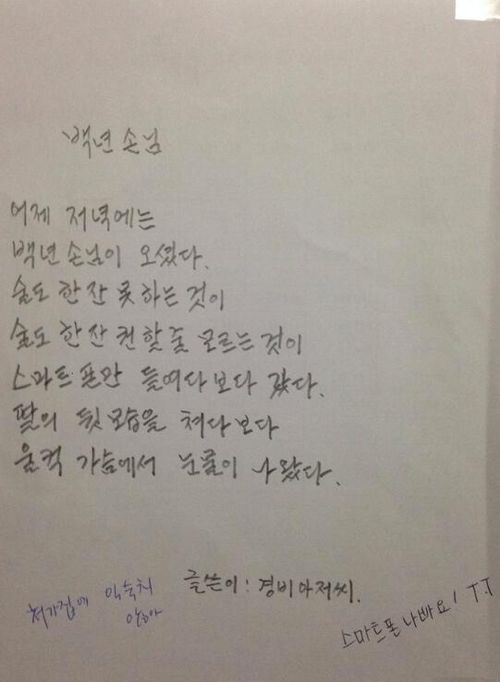 백년 손님
어제 저녁에는
백년 손님이 오셨다.
술도 한잔 못하는 것이
술도 한잔 권할줄 모르는 것이
스마트폰만 들여다보다 갔다.
딸의 뒷모습을 쳐다보다
울컥 가슴에서 눈물이 나왔다.
글쓴이 : 경비아저씨.
처가집에 익숙치
않아
스마트폰 나빠요! T.T